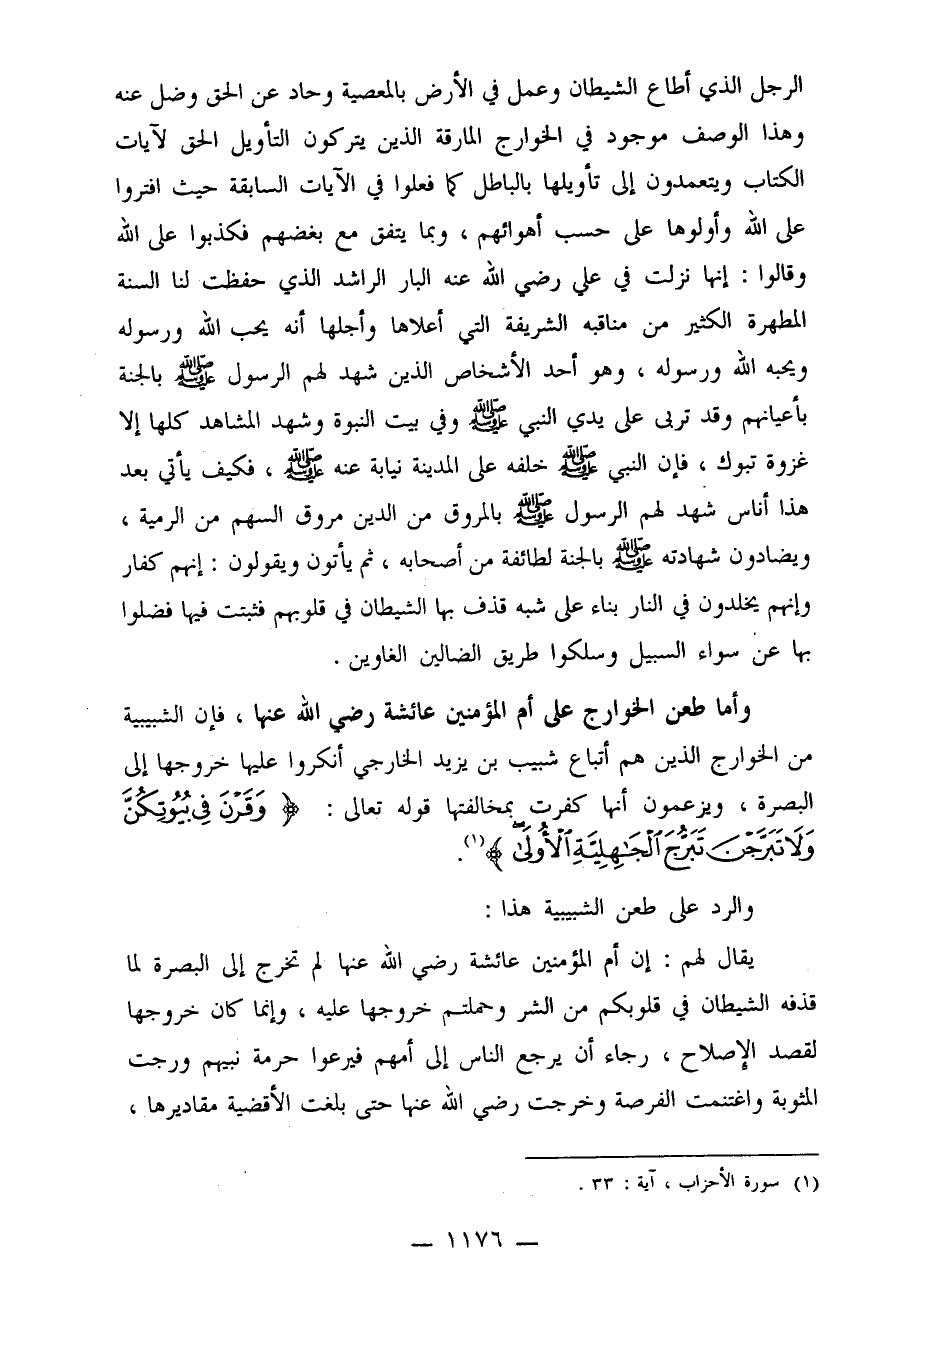 الرجل الذي أطاع الشيطان وعمل في الأرض بالمعصية وحاد عن الحق وضل عنه
وهذا الوصف موجود في الخوارج المارقة الذين يتركون التأويل الحق لآيات
الكتاب ويتعمدون إلى تأويلها بالباطل كما فعلوا في الآيات السابقة حيث افتروا
على الله وأولوها على حسب أهوائهم ، وبما يتفق مع بغضهم فكذبوا على الله
وقالوا : إنها نزلت في علي رضي الله عنه البار الراشد الذي حفظت لنا السنة
المطهرة الكثير من مناقبه الشريفة التي أعلاها وأجلها أنه يحب الله ورسوله
ويحبه الله ورسوله ، وهو أحد الأشخاص الذين شهد لهم الرسول ﷺ بالجنة
بأعيانهم وقد تربى على يدي النبي ﷺ وفي بيت النبوة وشهد المشاهد كلها إلا
غزوة تبوك ، فإن النبي ﷺ خلفه على المدينة نيابة عنه ﷺ ، فكيف يأتي بعد
هذا أناس شهد لهم الرسول ﷺ بالمروق من الدين مروق السهم من الرمية ،
ويضادون شهادته ﷺ بالجنة لطائفة من أصحابه ، ثم يأتون ويقولون : إنهم كفار
وإنهم يخلدون في النار بناء على شبه قذف بها الشيطان في قلوبهم فثبتت فيها فضلوا
بها عن سواء السبيل وسلكوا طريق الضالين الغاوين .
وأما طعن الخوارج على أم المؤمنين عائشة رضي الله عنها ، فإن الشبيبية
من الخوارج الذين هم أتباع شبيب بن يزيد الخارجي أنكروا عليها خروجها إلى
البصرة ، ويزعمون أنها كفرت بمخالفتها قوله تعالى : ﴿ وَقَرْنَ فِي بُيُوتِكُنَّ
وَلَا تَبَرَّجْنَ تَبَرُّجَ ٱلْجَٰهِلِيَّةِ ٱلْأُولَىٰ ﴾(١).
والرد على طعن الشبيبية هذا :
يقال لهم : إن أم المؤمنين عائشة رضي الله عنها لم تخرج إلى البصرة لما
قذفه الشيطان في قلوبكم من الشر وحملتم خروجها عليه ، وإنما كان خروجها
لقصد الإصلاح ، رجاء أن يرجع الناس إلى أمهم فيرعوا حرمة نبيهم ورجت
المثوبة واغتنمت الفرصة وخرجت رضي الله عنها حتى بلغت الأقضية مقاديرها ،
(١) سورة الأحزاب ، آية : ٣٣ .
— ١١٧٦ —